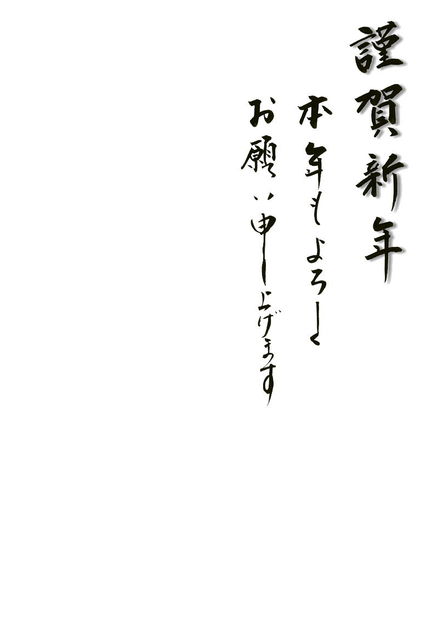 謹賀新年
本年もよろしく
お願い申し上げます